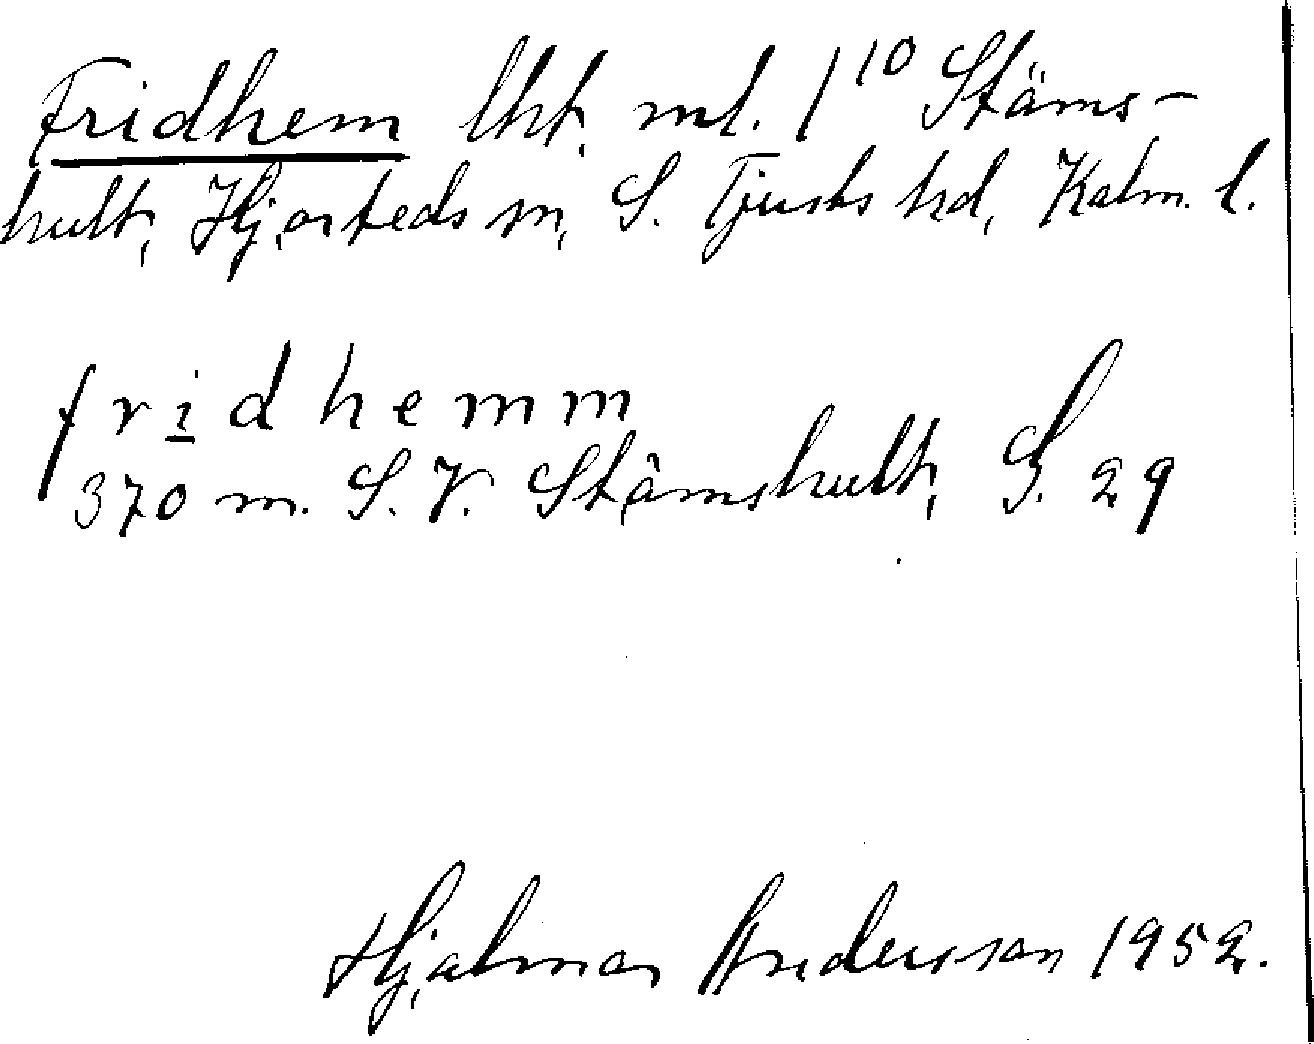 Fridhem lht, ml. 1¹⁰ Stäms-
hult, Hjorteds sn, S. Tjusts hd, Kalm. l.
fridhemm
370 m. S.V. Stämshult, G. 29
Hjalmar Andersson 1952.